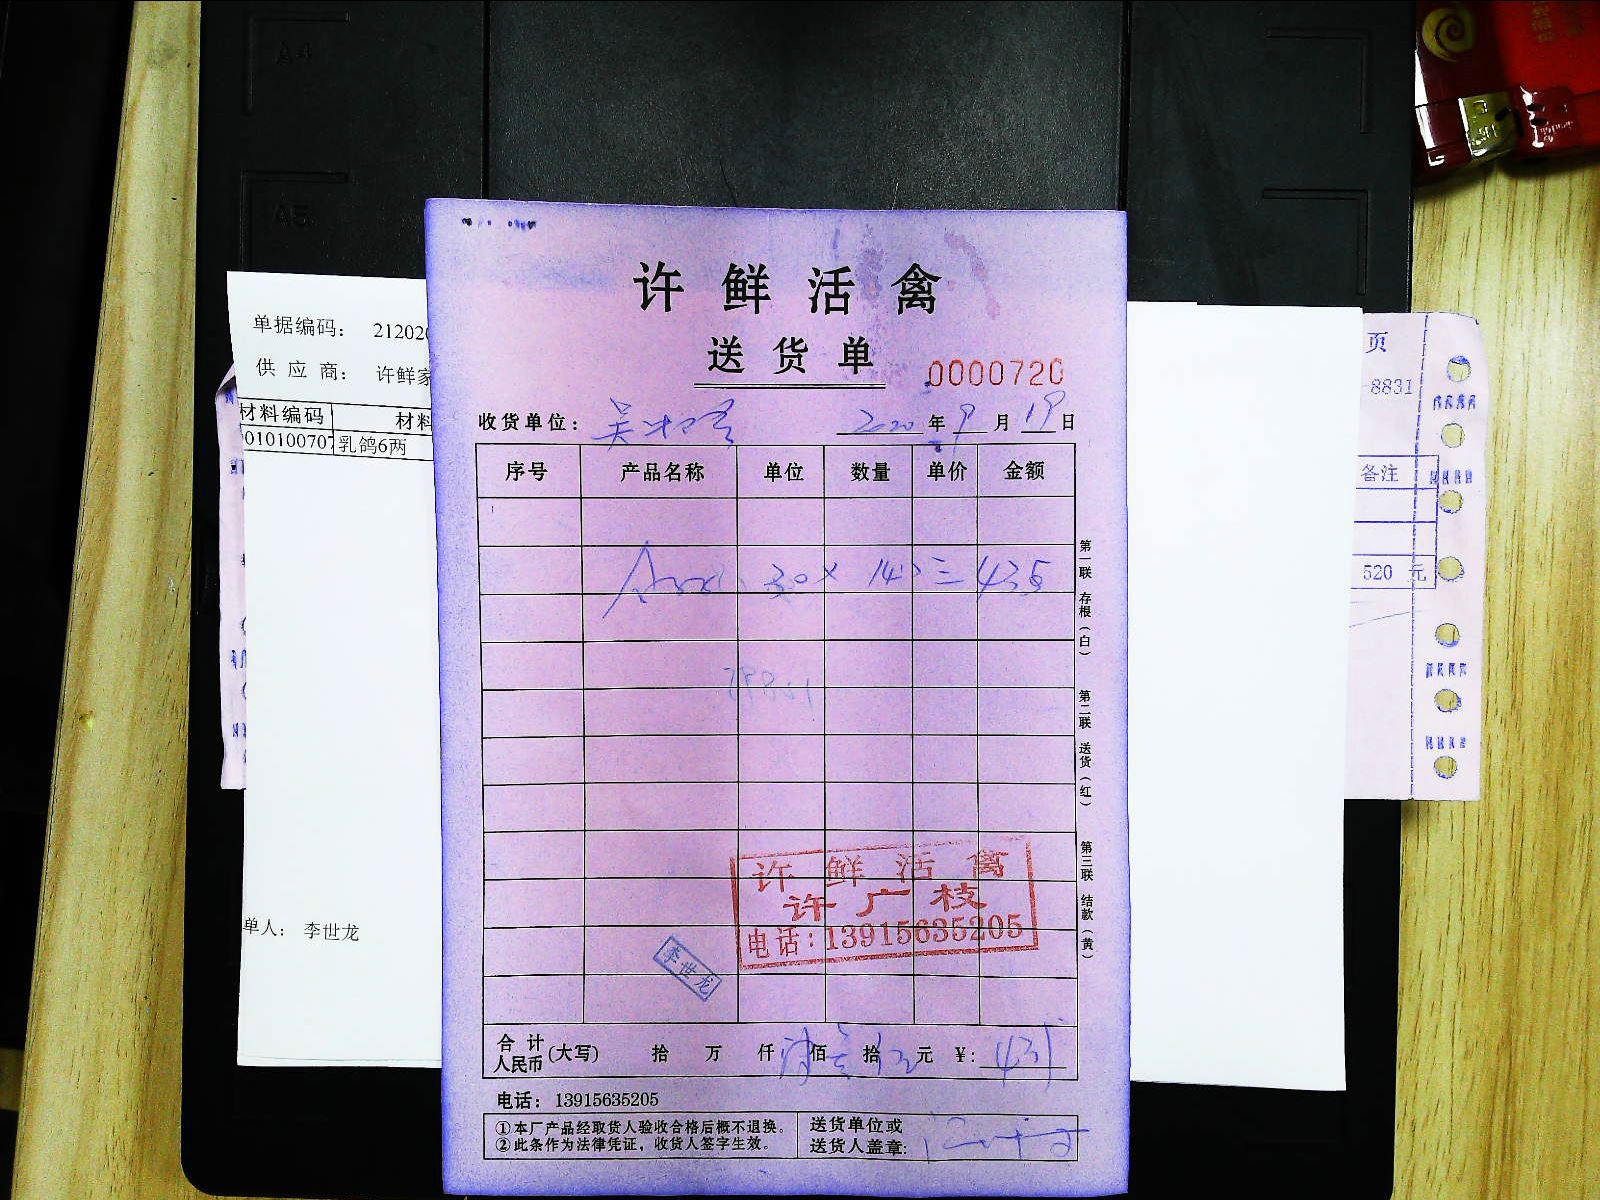 A4
A5
许鲜活禽
送货单
0000720
收货单位： 2020年9月19日
序号 产品名称 单位 数量 单价 金额
30× 145=435
第一联 存根（白） 第二联 送货（红） 第三联 结款（黄）
许鲜活禽
许广枝
电话：13915635205
李世龙
合计人民币(大写) 拾 万 仟 佰 拾 元 ¥: 435
电话：13915635205
①本厂产品经取货人验收合格后概不退换。
②此条作为法律凭证，收货人签字生效。
送货单位或
送货人盖章:
单据编码： 212020
供应商： 许鲜家
材料编码 材料
010100707 乳鸽6两
单人： 李世龙
页
-8831
备注
520 元